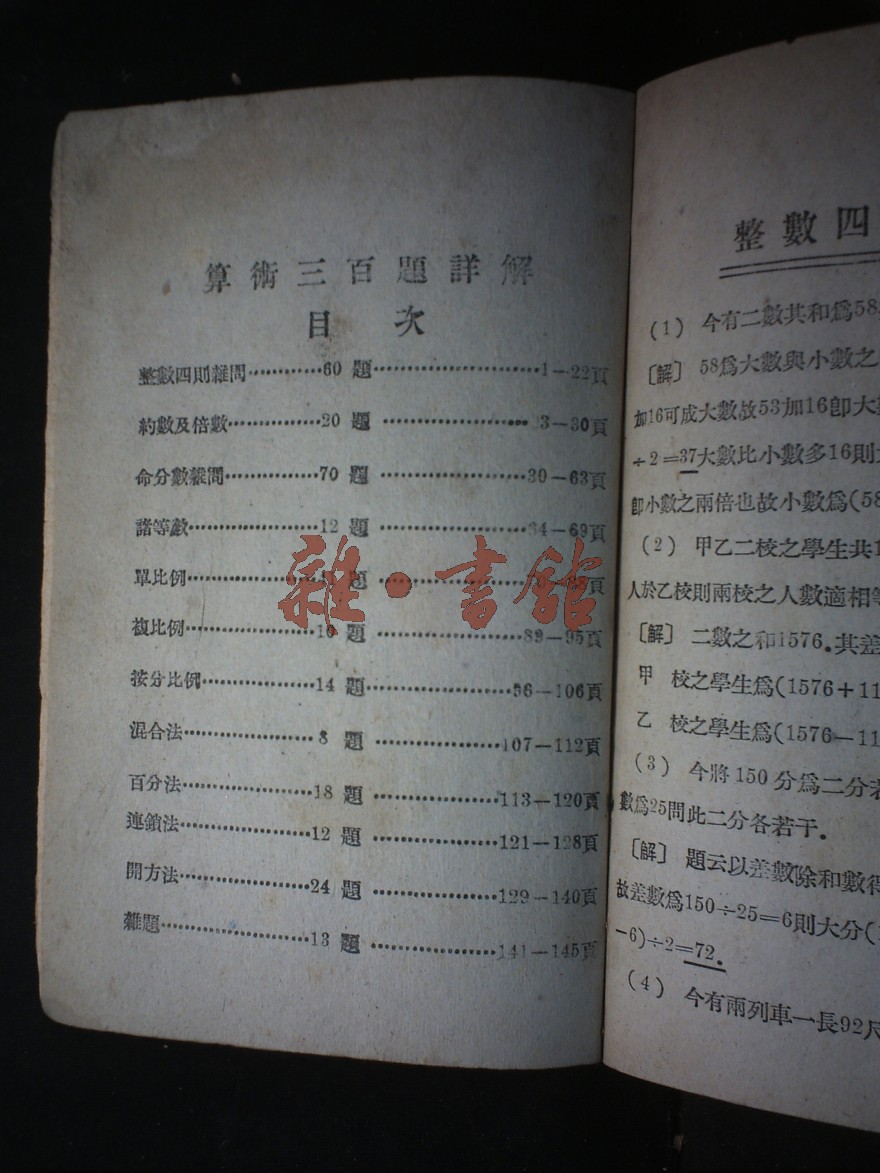 算術三百題詳解
目次
整數四則雜問…………60 題……………………1—22頁
約數及倍數……………20 題……………………3—30頁
命分數雜問……………70 題……………………30—63頁
諸等數…………………12 題……………………4—69頁
單比例…………………題……………………頁
複比例…………………10 題……………………89—95頁
按分比例………………14 題……………………96—106頁
混合法…………………8 題……………………107—112頁
百分法…………………18 題……………………113—120頁
連鎖法…………………12 題……………………121—128頁
開方法…………………24 題……………………129—140頁
雜題……………………13 題……………………141—145頁
雜·書館
整數四
(1) 今有二數其和爲58
〔解〕 58爲大數與小數之
加16可成大數故53加16卽大數
÷2=37大數比小數多16則
卽小數之兩倍也故小數爲(58
(2) 甲乙二校之學生共1
人於乙校則兩校之人數適相等
〔解〕 二數之和1576.其差
甲 校之學生爲(1576+11
乙 校之學生爲(1576—11
(3) 今將150分爲二分若
數爲25問此二分各若干.
〔解〕 題云以差數除和數得
故差數爲150÷25=6則大分(
-6)÷2=72.
(4) 今有兩列車一長92尺